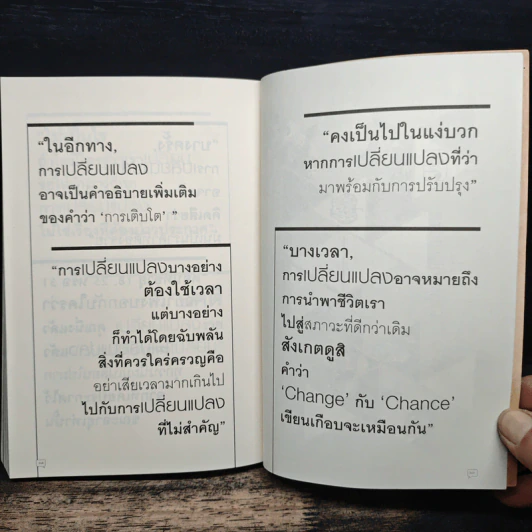 “ในอีกทาง,
การเปลี่ยนแปลง
อาจเป็นคำอธิบายเพิ่มเติม
ของคำว่า ‘การเติบโต’ ”
“การเปลี่ยนแปลงบางอย่าง
ต้องใช้เวลา
แต่บางอย่าง
ก็ทำได้โดยฉับพลัน
สิ่งที่ควรใคร่ครวญคือ
อย่าเสียเวลามากเกินไป
ไปกับการเปลี่ยนแปลง
ที่ไม่สำคัญ”
“คงเป็นไปในแง่บวก
หากการเปลี่ยนแปลงที่ว่า
มาพร้อมกับการปรับปรุง”
“บางเวลา,
การเปลี่ยนแปลงอาจหมายถึง
การนำพาชีวิตเรา
ไปสู่สภาวะที่ดีกว่าเดิม
สังเกตดูสิ
คำว่า
‘Change’ กับ ‘Chance’
เขียนเกือบจะเหมือนกัน”